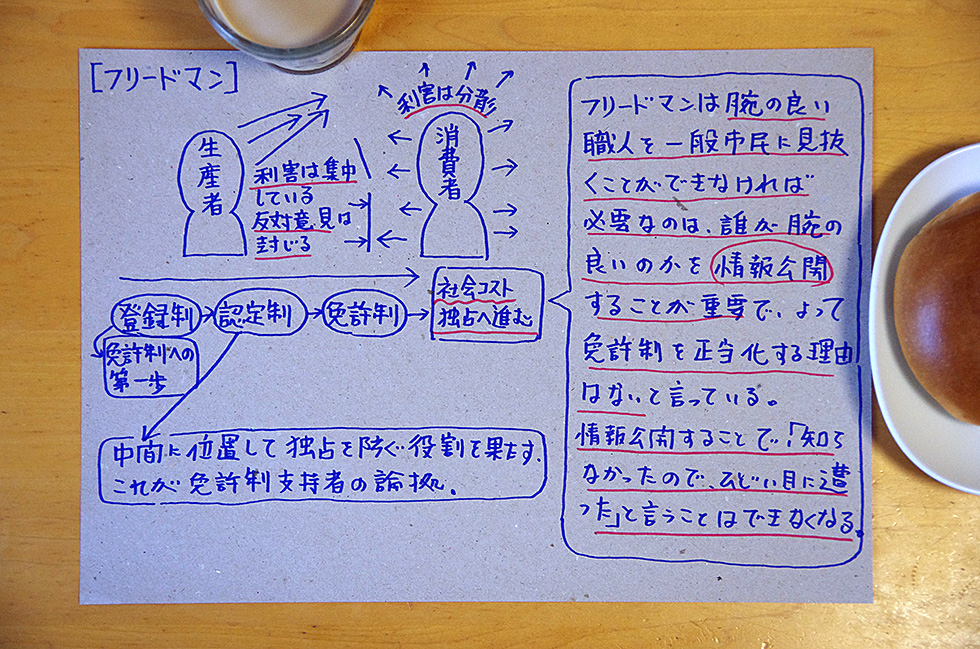 [フリードマン]
生産者
利害は集中
している
反対意見は
封じる
利害は分散
消費者
登録制
認定制
免許制
社会コスト
独占へ進む
免許制への
第一歩
中間に位置して独占を防ぐ役割を果たす、
これが免許制支持者の論拠。
フリードマンは腕の良い
職人を一般市民に見抜
くことができなければ
必要なのは、誰が腕の
良いのかを情報公開
することが重要で、よって
免許制を正当化する理由
はないと言っている。
情報公開することで、「知ら
なかったので、ひどい目に遭
った」と言うことはできなくなる。